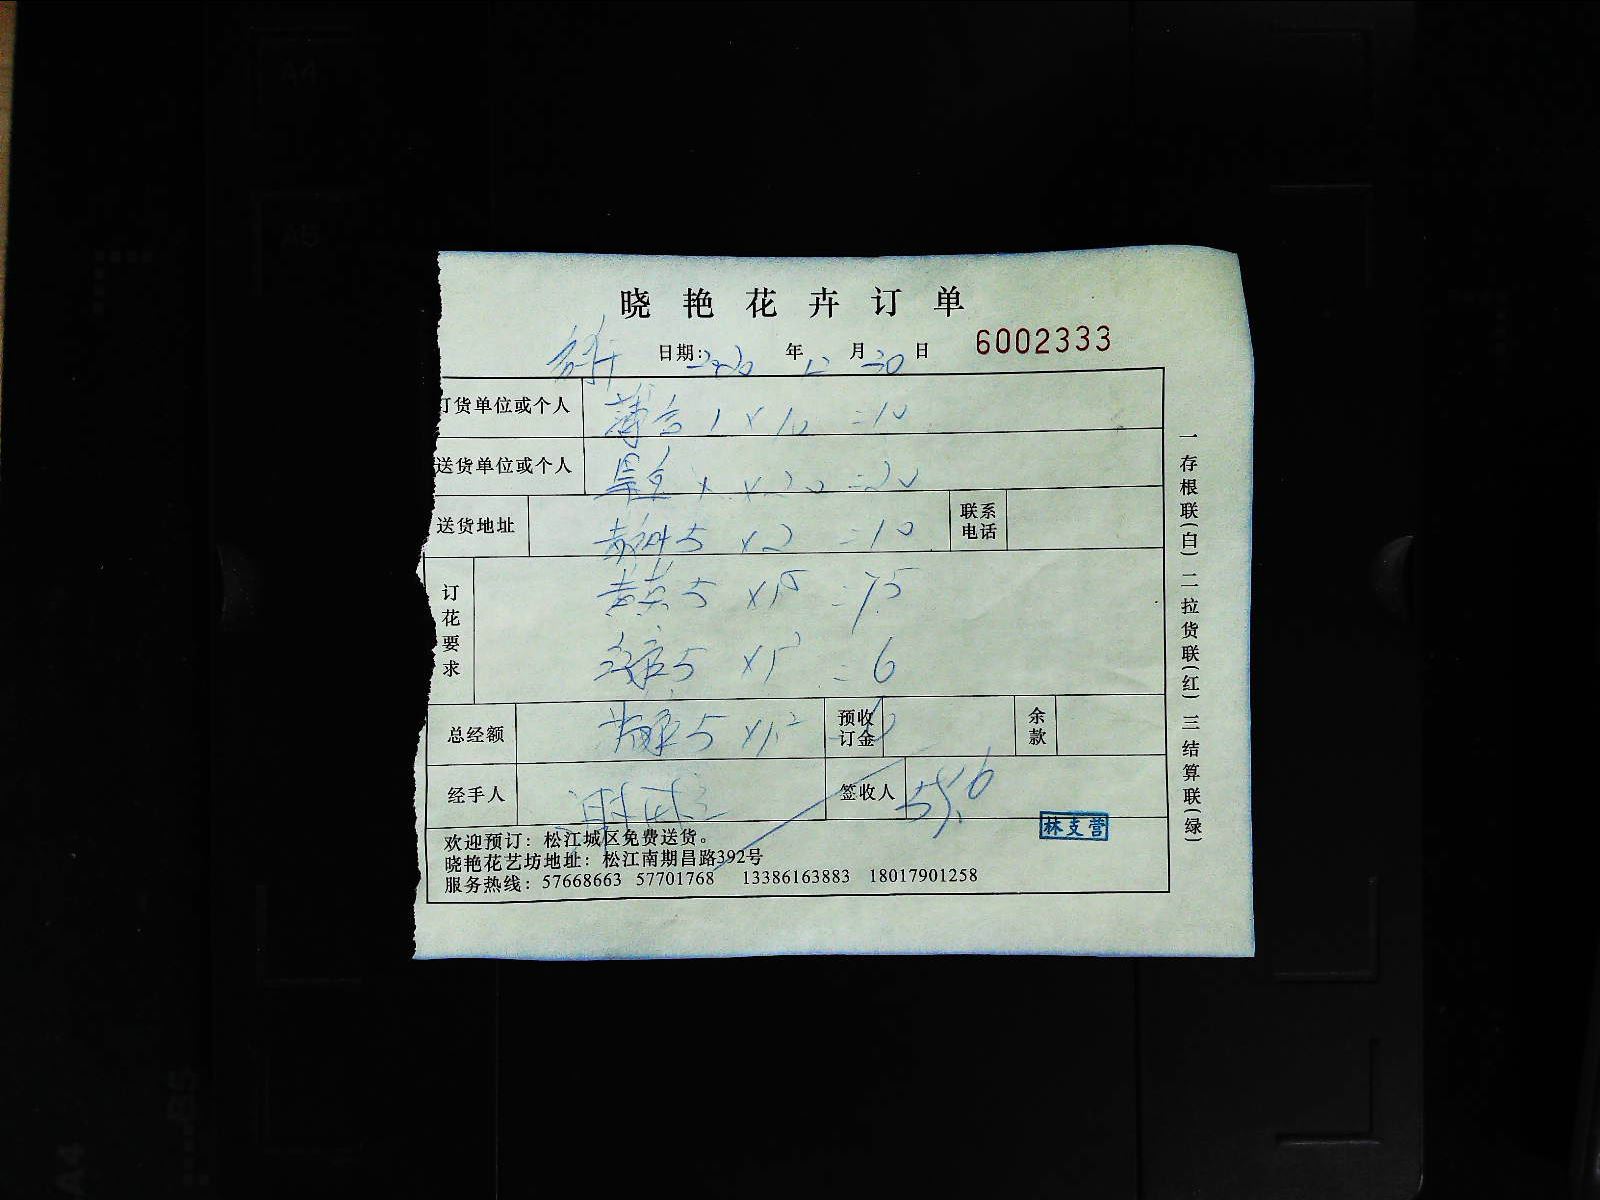 晓艳花卉订单
日期: 2020 年 12 月 30 日 6002333
订货单位或个人 1 × 10 = 10
送货单位或个人 × 20 = 20
送货地址 5 × 2 = 10 联系电话
订花要求 5 × 1.5 = 7.5
5 × 1.2 = 6
总经额 5 × 1.2 预收订金 余款
经手人 签收人
林支营
欢迎预订：松江城区免费送货。
晓艳花艺坊地址：松江南期昌路392号
服务热线：57668663 57701768 13386163883 18017901258
一存根联(白) 二拉货联(红) 三结算联(绿)